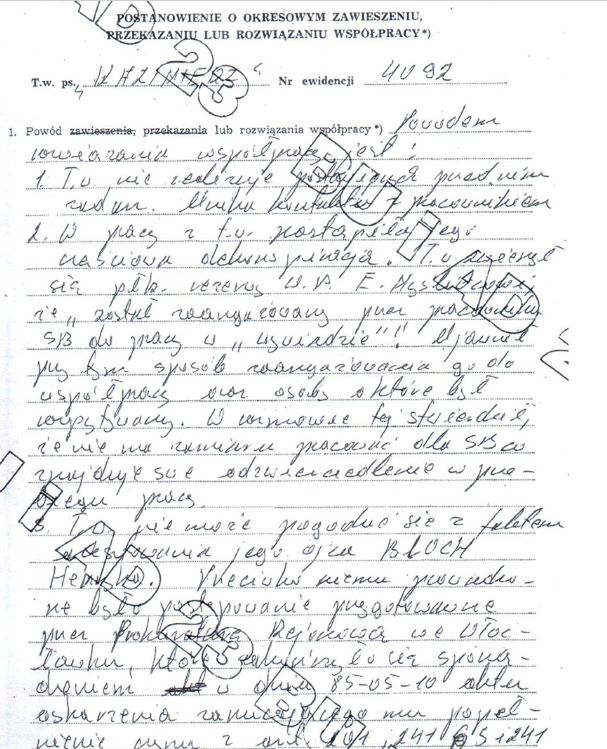 POSTANOWIENIE O OKRESOWYM ZAWIESZENIU,
PRZEKAZANIU LUB ROZWIĄZANIU WSPÓŁPRACY*)
T.w. ps. „KAZIMIERZ" Nr ewidencji 4092
1. Powód zawieszenia, przekazania lub rozwiązania współpracy*) Powodem
rozwiązania współpracy jest:
1. T.w. nie realizuje postawionych przed nim
zadań. Unika kontaktów z pracownikiem
2. W pracy z t.w. nastąpiła jego
celowa dekonspiracja. T.w. zwierzył
się płk. rezerwy W.P. E.
że „został zaangażowany przez pracownika
SB do pracy w „wywiadzie"". Ujawnił
przy tym sposób zaangażowania go do
współpracy oraz osoby o które był
wypytywany. W rozmowie tej stwierdził,
że nie ma zamiaru pracować dla SB co
znajduje swe odzwierciedlenie w prze-
biegu pracy.
3. T.w. nie może pogodzić się z faktem
aresztowania jego ojca BLOCH
Henryka. Przeciwko niemu prowadzo-
ne było postępowanie przygotowawcze
przez Prokuraturę Rejonową we Włoc-
ławku, które zakończyło się sporzą-
dzeniem w dniu 85-05-10 aktu
oskarżenia zarzucającego mu popeł-
nienie czynu z art. 201 i 241 § 1 i 241